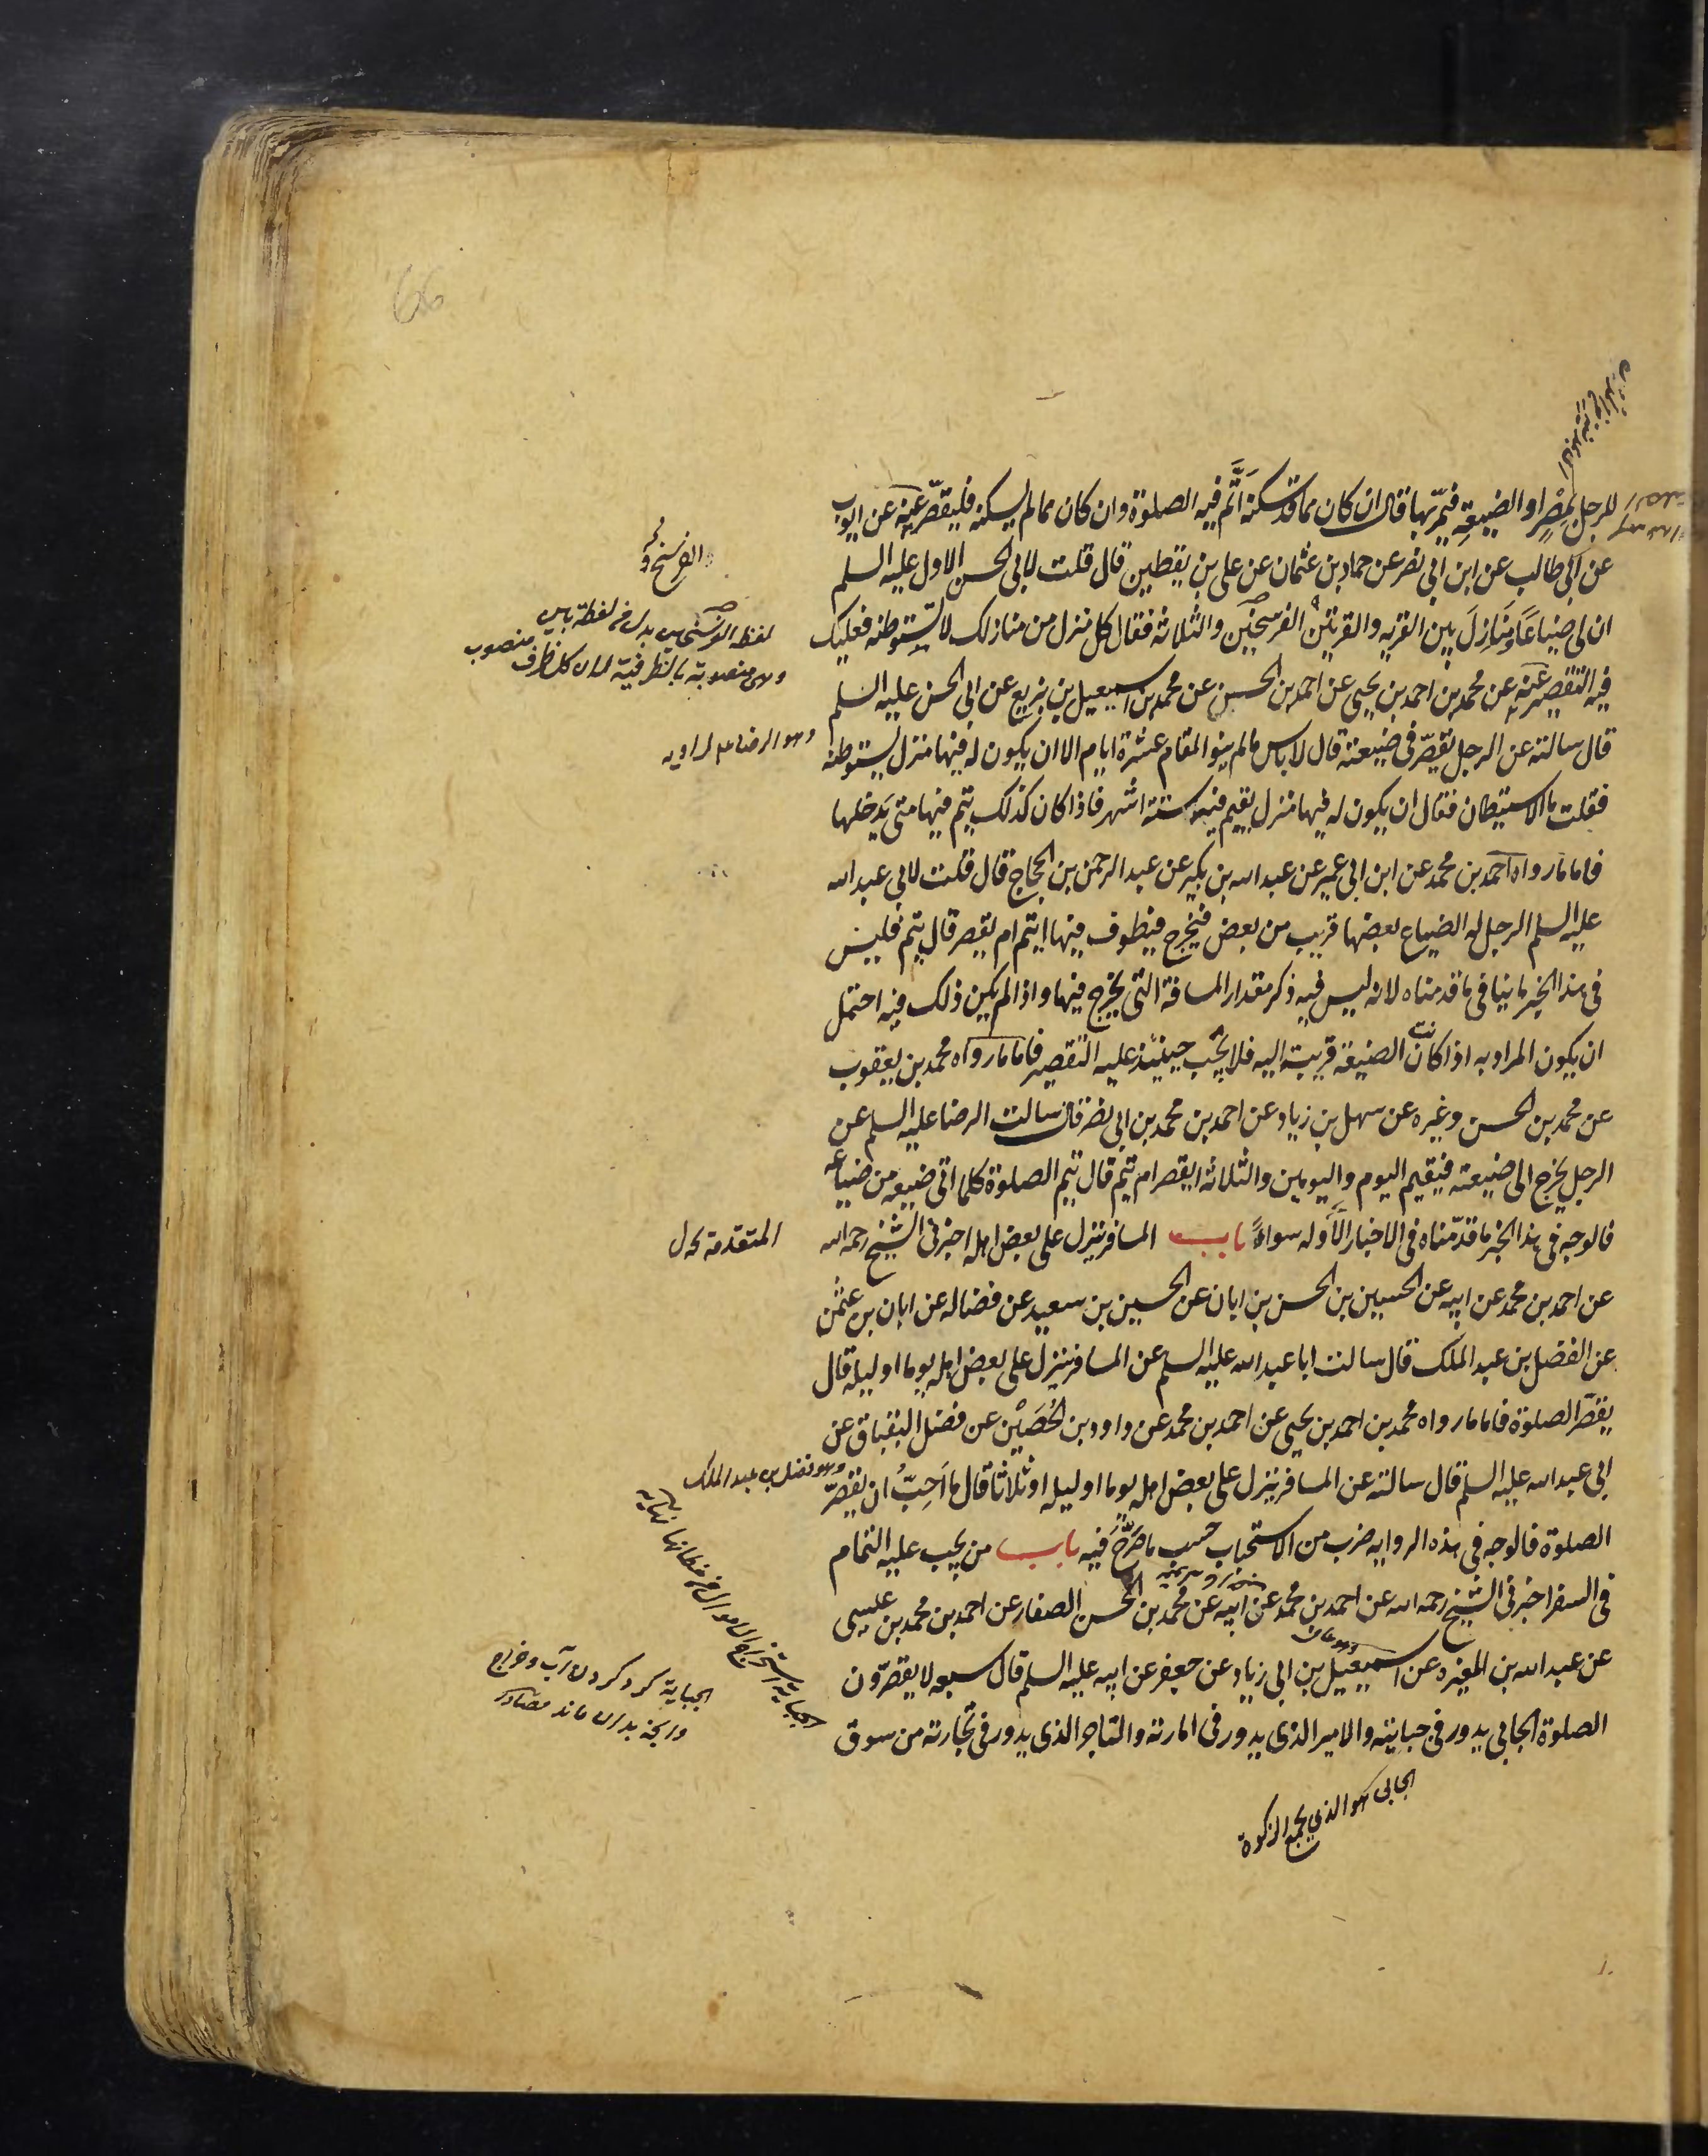 للرجل بمصرٍ او الضيعةِ فيمرّ بها قال ان كان مما قد سكنه اَتَّم فيه الصلوة وان كان مما لم يسكنه فليقصّر عنه عن ايوب
عن ابى طالب عن ابن ابى نصر عن حماد بن عثمان عن على بن يقطين قال قلت لابى الحسن الاول عليه السلم
ان لى ضياعًا ومنازلَ بين القريه والقريتين الفرسخين والثلاثة فقال كل منزل من منازلك لا تستوطنه فعليك
فيه التقصير عنه عن محمد بن احمد بن يحيى عن احمد بن الحسين عن محمد بن اسمعيل بن بزيع عن ابى الحسن عليه السلم
قال سالته عن الرجل يقصّر فى ضيعته قال لاباس مالم ينو المقام عشرة ايام الا ان يكون له فيها منزل يستوطنه
فقلت ما الاستيطان فقال ان يكون له فيها منزل يقيم فيه ستة اشهر فاذا كان كذلك يتم فيها متى يدخلها
فاما مارواه احمد بن محمد عن ابن ابى عمير عن عبد الله بن بكير عن عبد الرحمن بن الحجاج قال قلت لابى عبد الله
عليه السلم الرجل له الضياع بعضها قريب من بعض فيخرج فيطوف فيها ايتم ام يقصر قال يتم فليس
فى هذا الخبر ما ينافى ما قدمناه لانه ليس فيه ذكر مقدار المسافة التى يخرج فيها واذا لم يكين ذلك فيه احتمل
ان يكون المراد به اذا كانت الضيعة قريبة اليه فلا يجب حينئذ عليه التقصير فاما مارواه محمد بن يعقوب
عن محمد بن الحسن وغيره عن سهل بن زياد عن احمد بن محمد بن ابى نصر قال سالت الرضا عليه السلم عن
الرجل يخرج الى ضيعته فيقيم اليوم واليومين والثلاثة ايقصر ام يتم قال يتم الصلوة كلما اتى ضيعه من ضياعه
فالوجه فى هذا الخبر ما قدّمناه فى الاخبار الاوله سواءً باب المسافر ينزل على بعض اهله اخبرنى الشيخ رحمه الله
المتقدمة
عن احمد بن محمد عن ابيه عن الحسين بن الحسن بن ابان عن الحسين بن سعيد عن فضاله عن ابان بن عثمن
عن الفضل بن عبد الملك قال سالت ابا عبد الله عليه السلم عن المسافر ينزل على بعض اهله يوما او ليله قال
يقصّر الصلوة فاما مارواه محمد بن احمد بن يحيى عن احمد بن محمد عن داود بن الحُصَيْن عن فضل البقباق عن
ابى عبد الله عليه السلم قال سالته عن المسافر ينزل على بعض اهله يوما او ليله او ثلاثا قال ما اُحِبّ ان يقصّر
وهو فضل بن عبد الملك
الصلوة فالوجه فى هذه الروايه ضرب من الاستحباب حسب ما صَرَّحَ فيه باب من يجب عليه التمام
فى السفر اخبرنى الشيخ رحمه الله عن احمد بن محمد عن ابيه عن محمد بن الحسن الصفار عن احمد بن محمد بن عيسى
عن عبد الله بن المغيره عن اسمعيل بن ابى زياد عن جعفر عن ابيه عليه السلم قال سبعه لا يقصّرون
الصلوة الجابى يدور فى جبايته والامير الذى يدور فى امارته والتاجر الذى يدور فى تجارته من سوق
الجابى هو الذى يجمع الزكوة
66